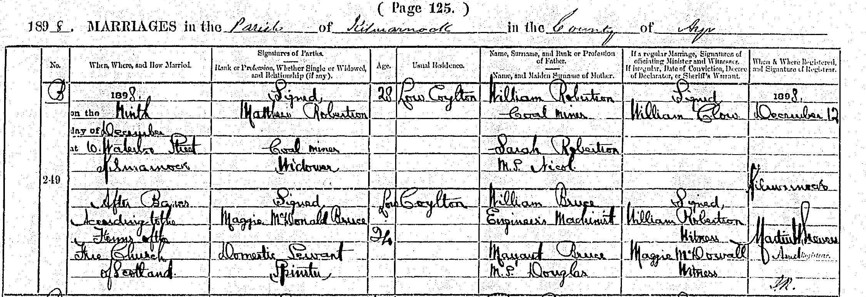 ( Page 125. )
1898. MARRIAGES in the Parish of Kilmarnock in the County of Ayr
No.
When, Where, and How Married.
Signatures of Parties.
Rank or Profession, Whether Single or Widowed, and Relationship (if any).
Age.
Usual Residence.
Name, Surname, and Rank or Profession of Father.
Name, and Maiden Surname of Mother.
If a regular Marriage, Signatures of officiating Minister and Witnesses. If irregular, Date of Conviction, Decree of Declarator, or Sheriff's Warrant.
When & Where Registered, and Signature of Registrar.
249
1898.
on the Ninth
day of December
at 10. Waterloo Street
Kilmarnock
After Banns
According to the
Forms of the
Free Church
of Scotland.
Signed
Matthew Robertson
Coal miner
Widower
Signed
Maggie McDonald Bruce
Domestic Servant
Spinster
28
24
Low Coylton
Low Coylton
William Robertson
Coal miner
Sarah Robertson
M.S. Nicol
William Bruce
Engineer's Machinist
Margaret Bruce
M.S. Douglas
Signed
William Clow
Signed
William Robertson
Witness
Maggie McDowall
Witness
1898.
December 12
Kilmarnock
Registrar.